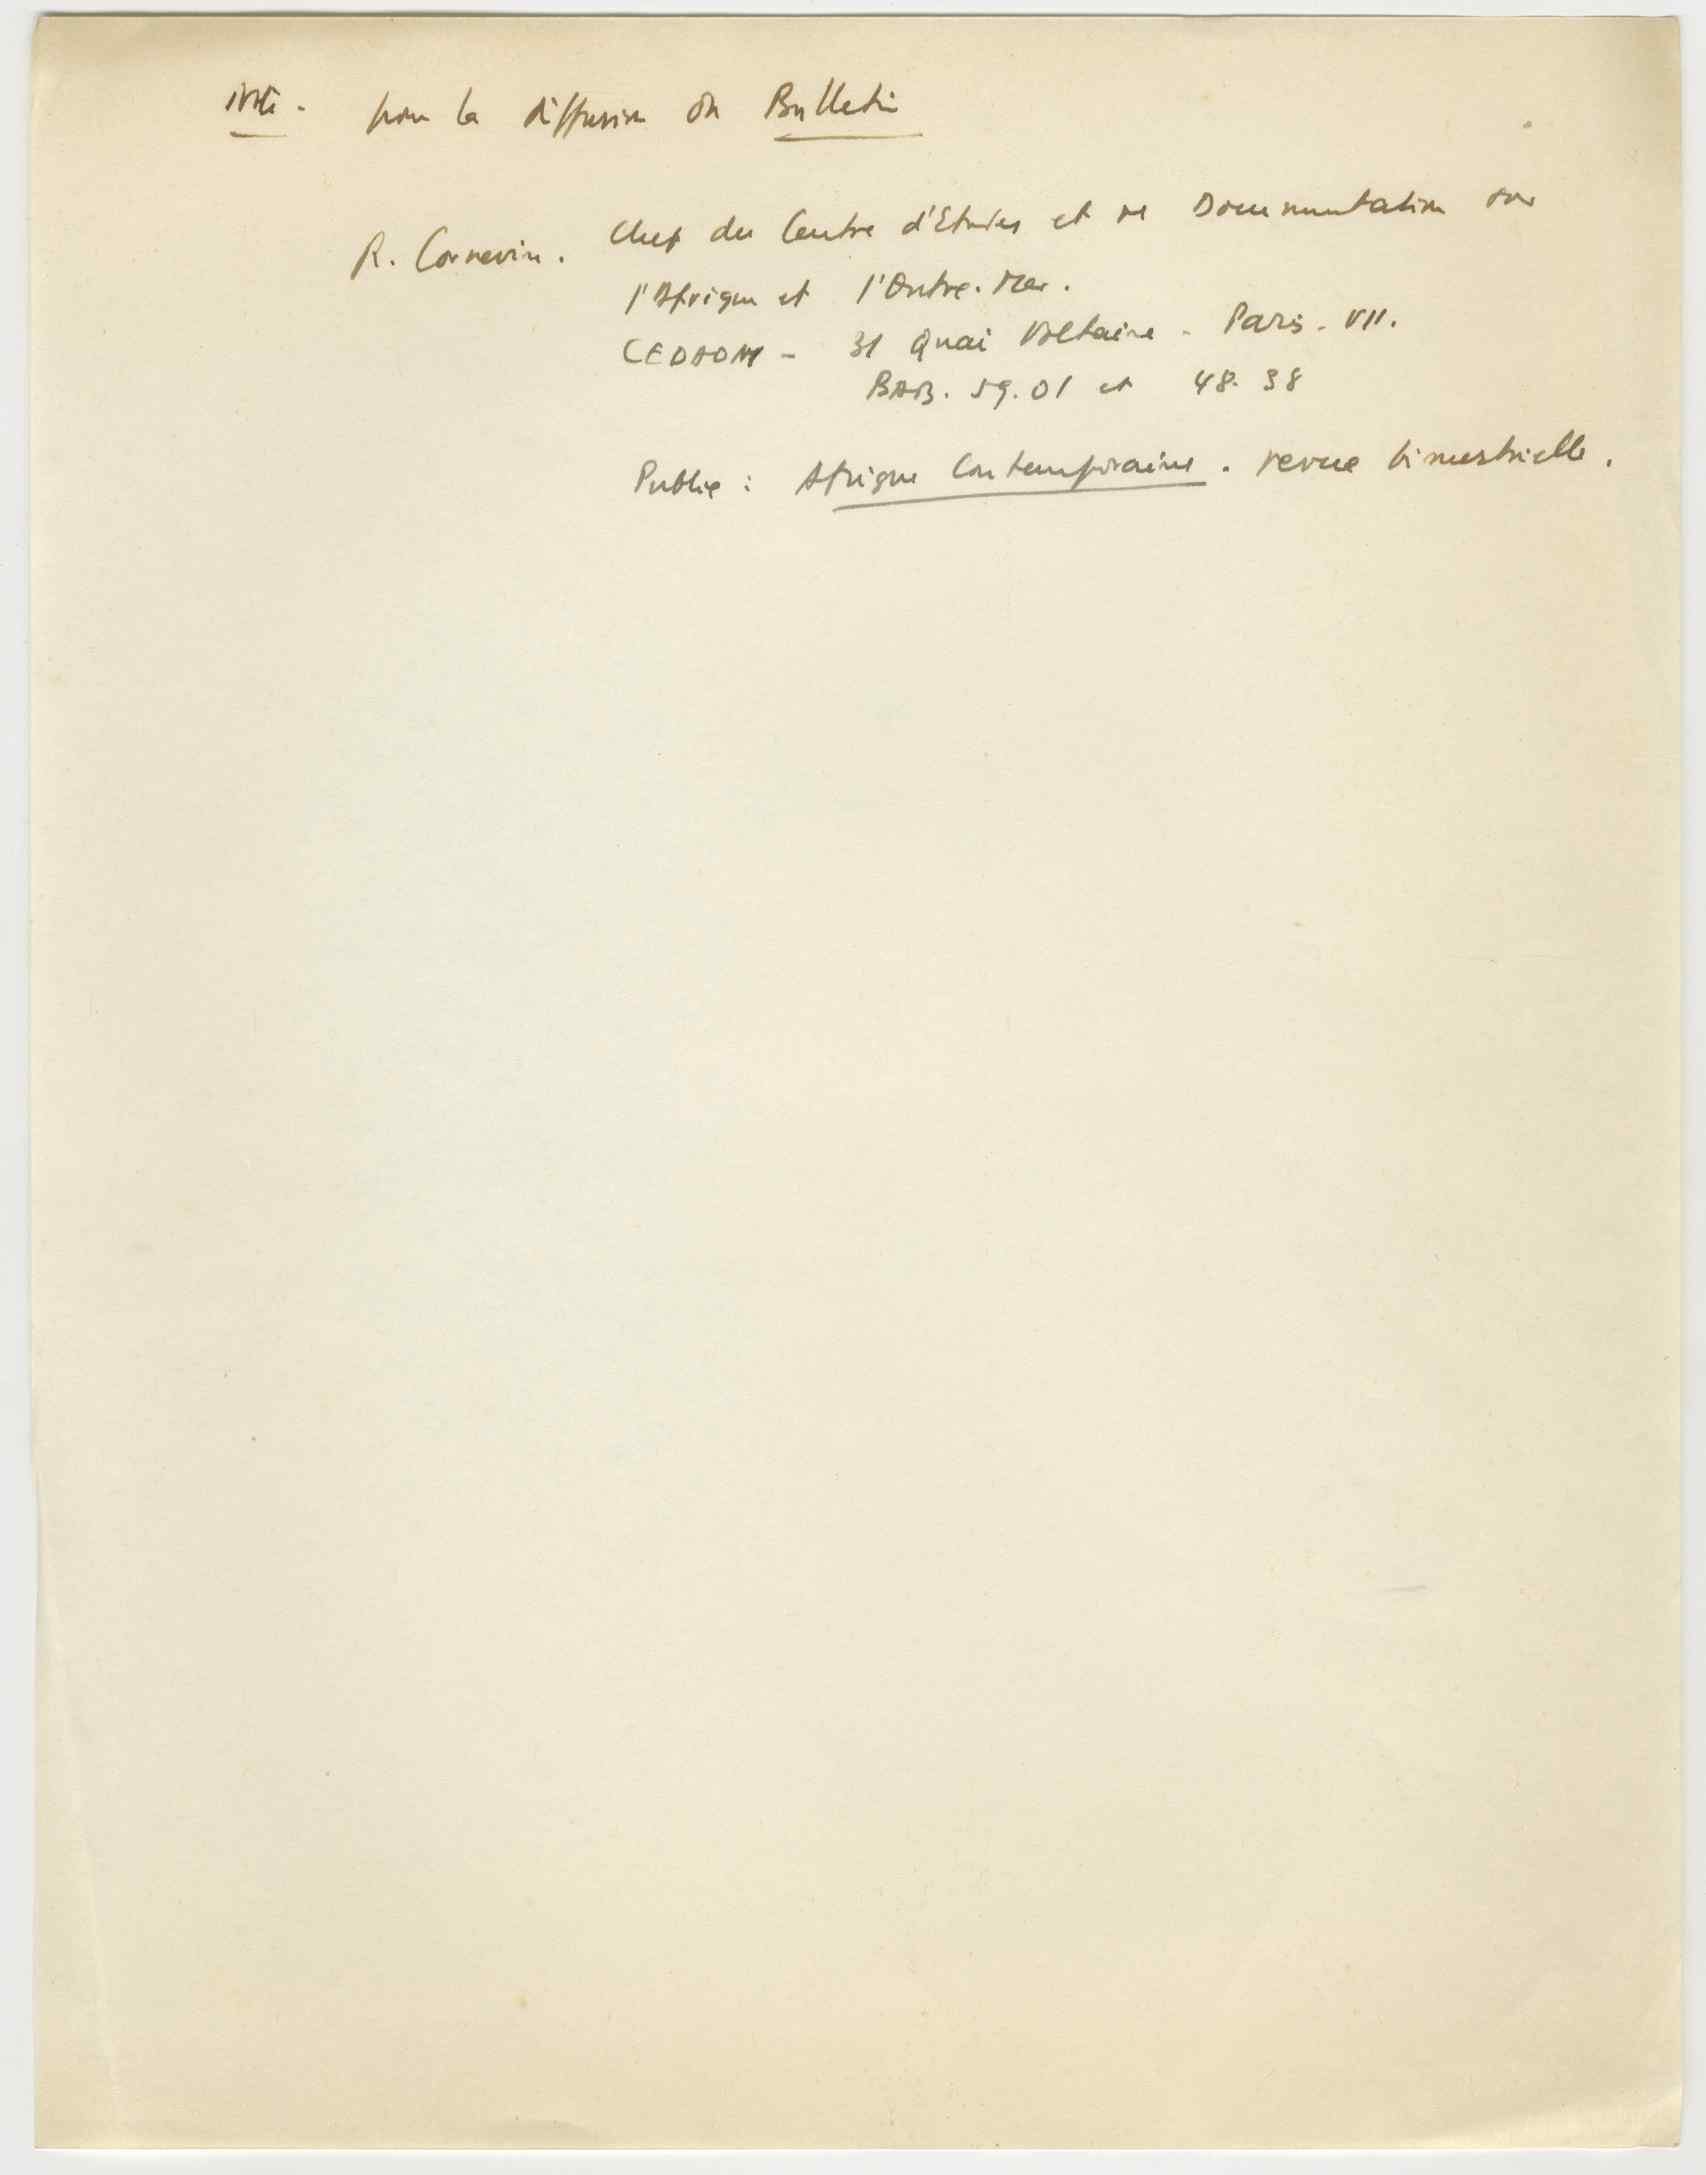 Note. pour la diffusion du Bulletin
R. Cornevin. Chef du Centre d'Etudes et de Documentation sur
l'Afrique et l'Outre-Mer.
CEDAOM - 31 Quai Voltaire - Paris. VII.
BAB. 59.01 et 48.38
Publie : Afrique Contemporaine. revue bimestrielle.